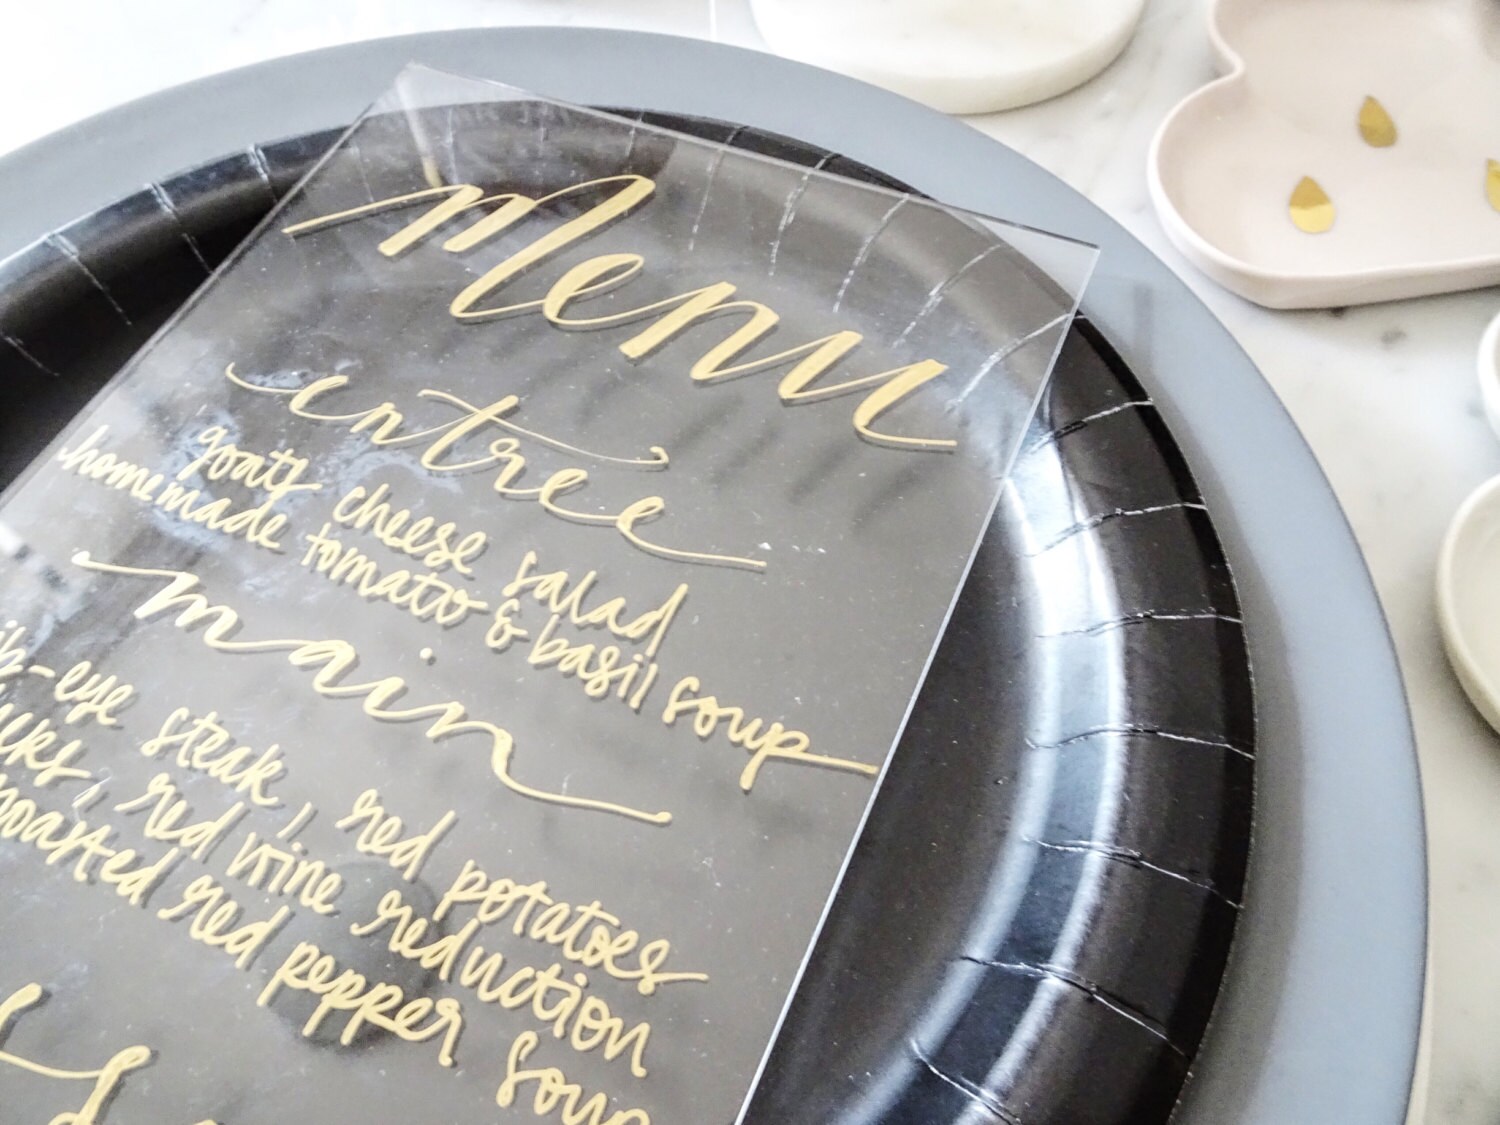 Menu
entrée
goats cheese salad
homemade tomato & basil soup
main
-eye steak, red potatoes
red wine reduction
roasted red pepper soup